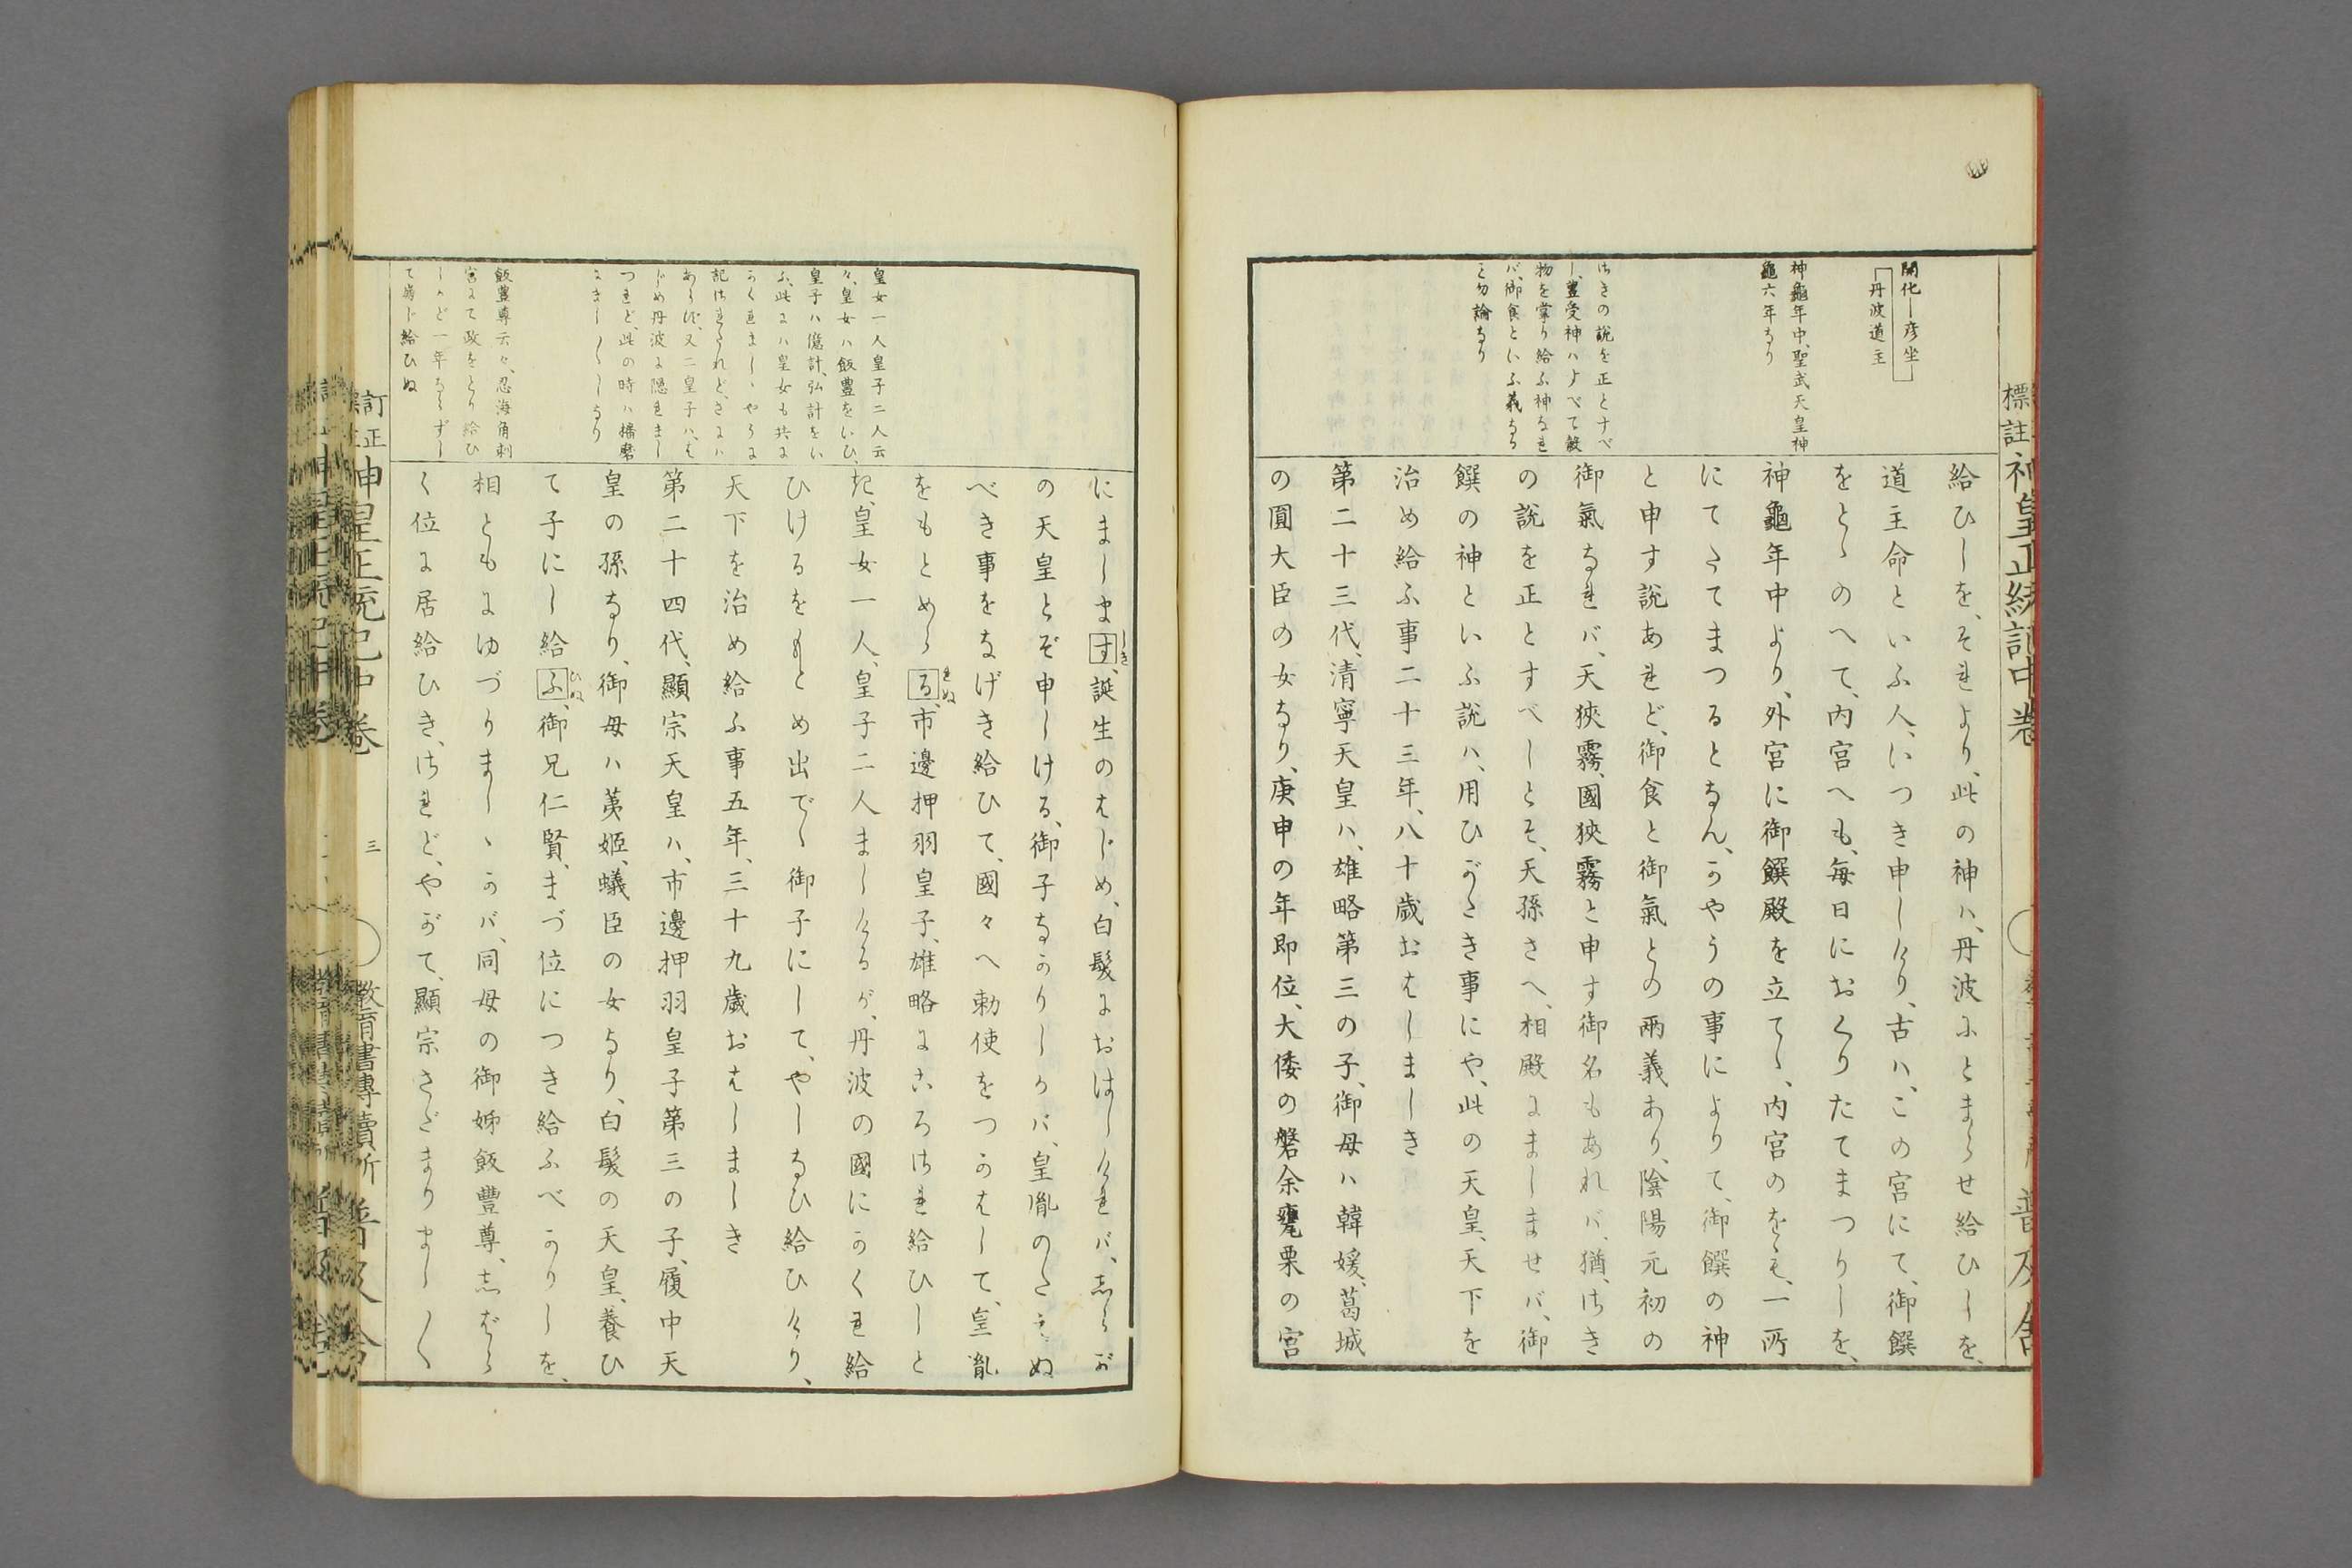 標註神皇正統記中卷
普及舍
開化―彦坐
丹波道主
神龜年中、聖武天皇神
龜六年なり
はきの說を正とすべ
し、豊受神ハすべて穀
物を掌り給ふ神なれ
バ、御食といふ義なる
こと勿論なり
給ひしを、それより、此の神ハ、丹波にとまらせ給ひしを、
道主命といふ人、いつき申しけり、古ハ、この宮にて、御饌
をとゝのへて、內宮へも、每日におくりたてまつりしを、
神龜年中より、外宮に御饌殿を立てゝ、內宮のをも、一所
にてたてまつるとなん、かやうの事によりて、御饌の神
と申す說あれど、御食と御氣との兩義あり、陰陽元初の
御氣なれバ、天狹霧、國狹霧と申す御名もあれバ、猶、はき
の說を正とすべしとぞ、天孫さへ、相殿にましませバ、御
饌の神といふ說ハ、用ひがたき事にや、此の天皇、天下を
治め給ふ事二十三年、八十歲おはしましき
第二十三代、清寧天皇ハ、雄略第三の子、御母ハ韓媛、葛城
の圓大臣の女なり、庚申の年即位、大倭の磐余甕栗の宮
にましますしき、誕生のはじめ、白髮におはしけれバ、しらが
の天皇とぞ申しける、御子なかりしかバ、皇胤のたえぬ
べき事をなげき給ひて、國々へ勅使をつかはして、皇胤
をもとめらるれぬ、市邊押羽皇子、雄略にころされ給ひしと
き、皇女一人、皇子二人ましけるが、丹波の國にかくれ給
ひけるをもとめ出でゝ御子にして、やしなひ給ひけり、
天下を治め給ふ事五年、三十九歲おはしましき
第二十四代、顯宗天皇ハ、市邊押羽皇子第三の子、履中天
皇の孫なり、御母ハ荑姬、蟻臣の女なり、白髮の天皇、養ひ
て子にし給ふひぬ、御兄仁賢、まづ位につき給ふべかりしを、
相ともにゆづりましゝかバ、同母の御姊飯豐尊、しばら
く位に居給ひき、されど、やがて、顯宗さだまりまし〱
皇女一人皇子二人云
々、皇女ハ飯豊をいひ、
皇子ハ億計、弘計をい
ふ、此にハ皇女も共に
かくれましゝやうに
記されたれど、さにハ
あらず、又二皇子ハ、は
じめ丹波に隱れまし
つれど、此の時ハ播磨
にまし〱しなり
飯豊尊云々、忍海角刺
宮にて政をとり給ひ
しかど一年ならずし
て崩じ給ひぬ
訂正神皇正統記中卷
三
敎育書專賣所
普及舍